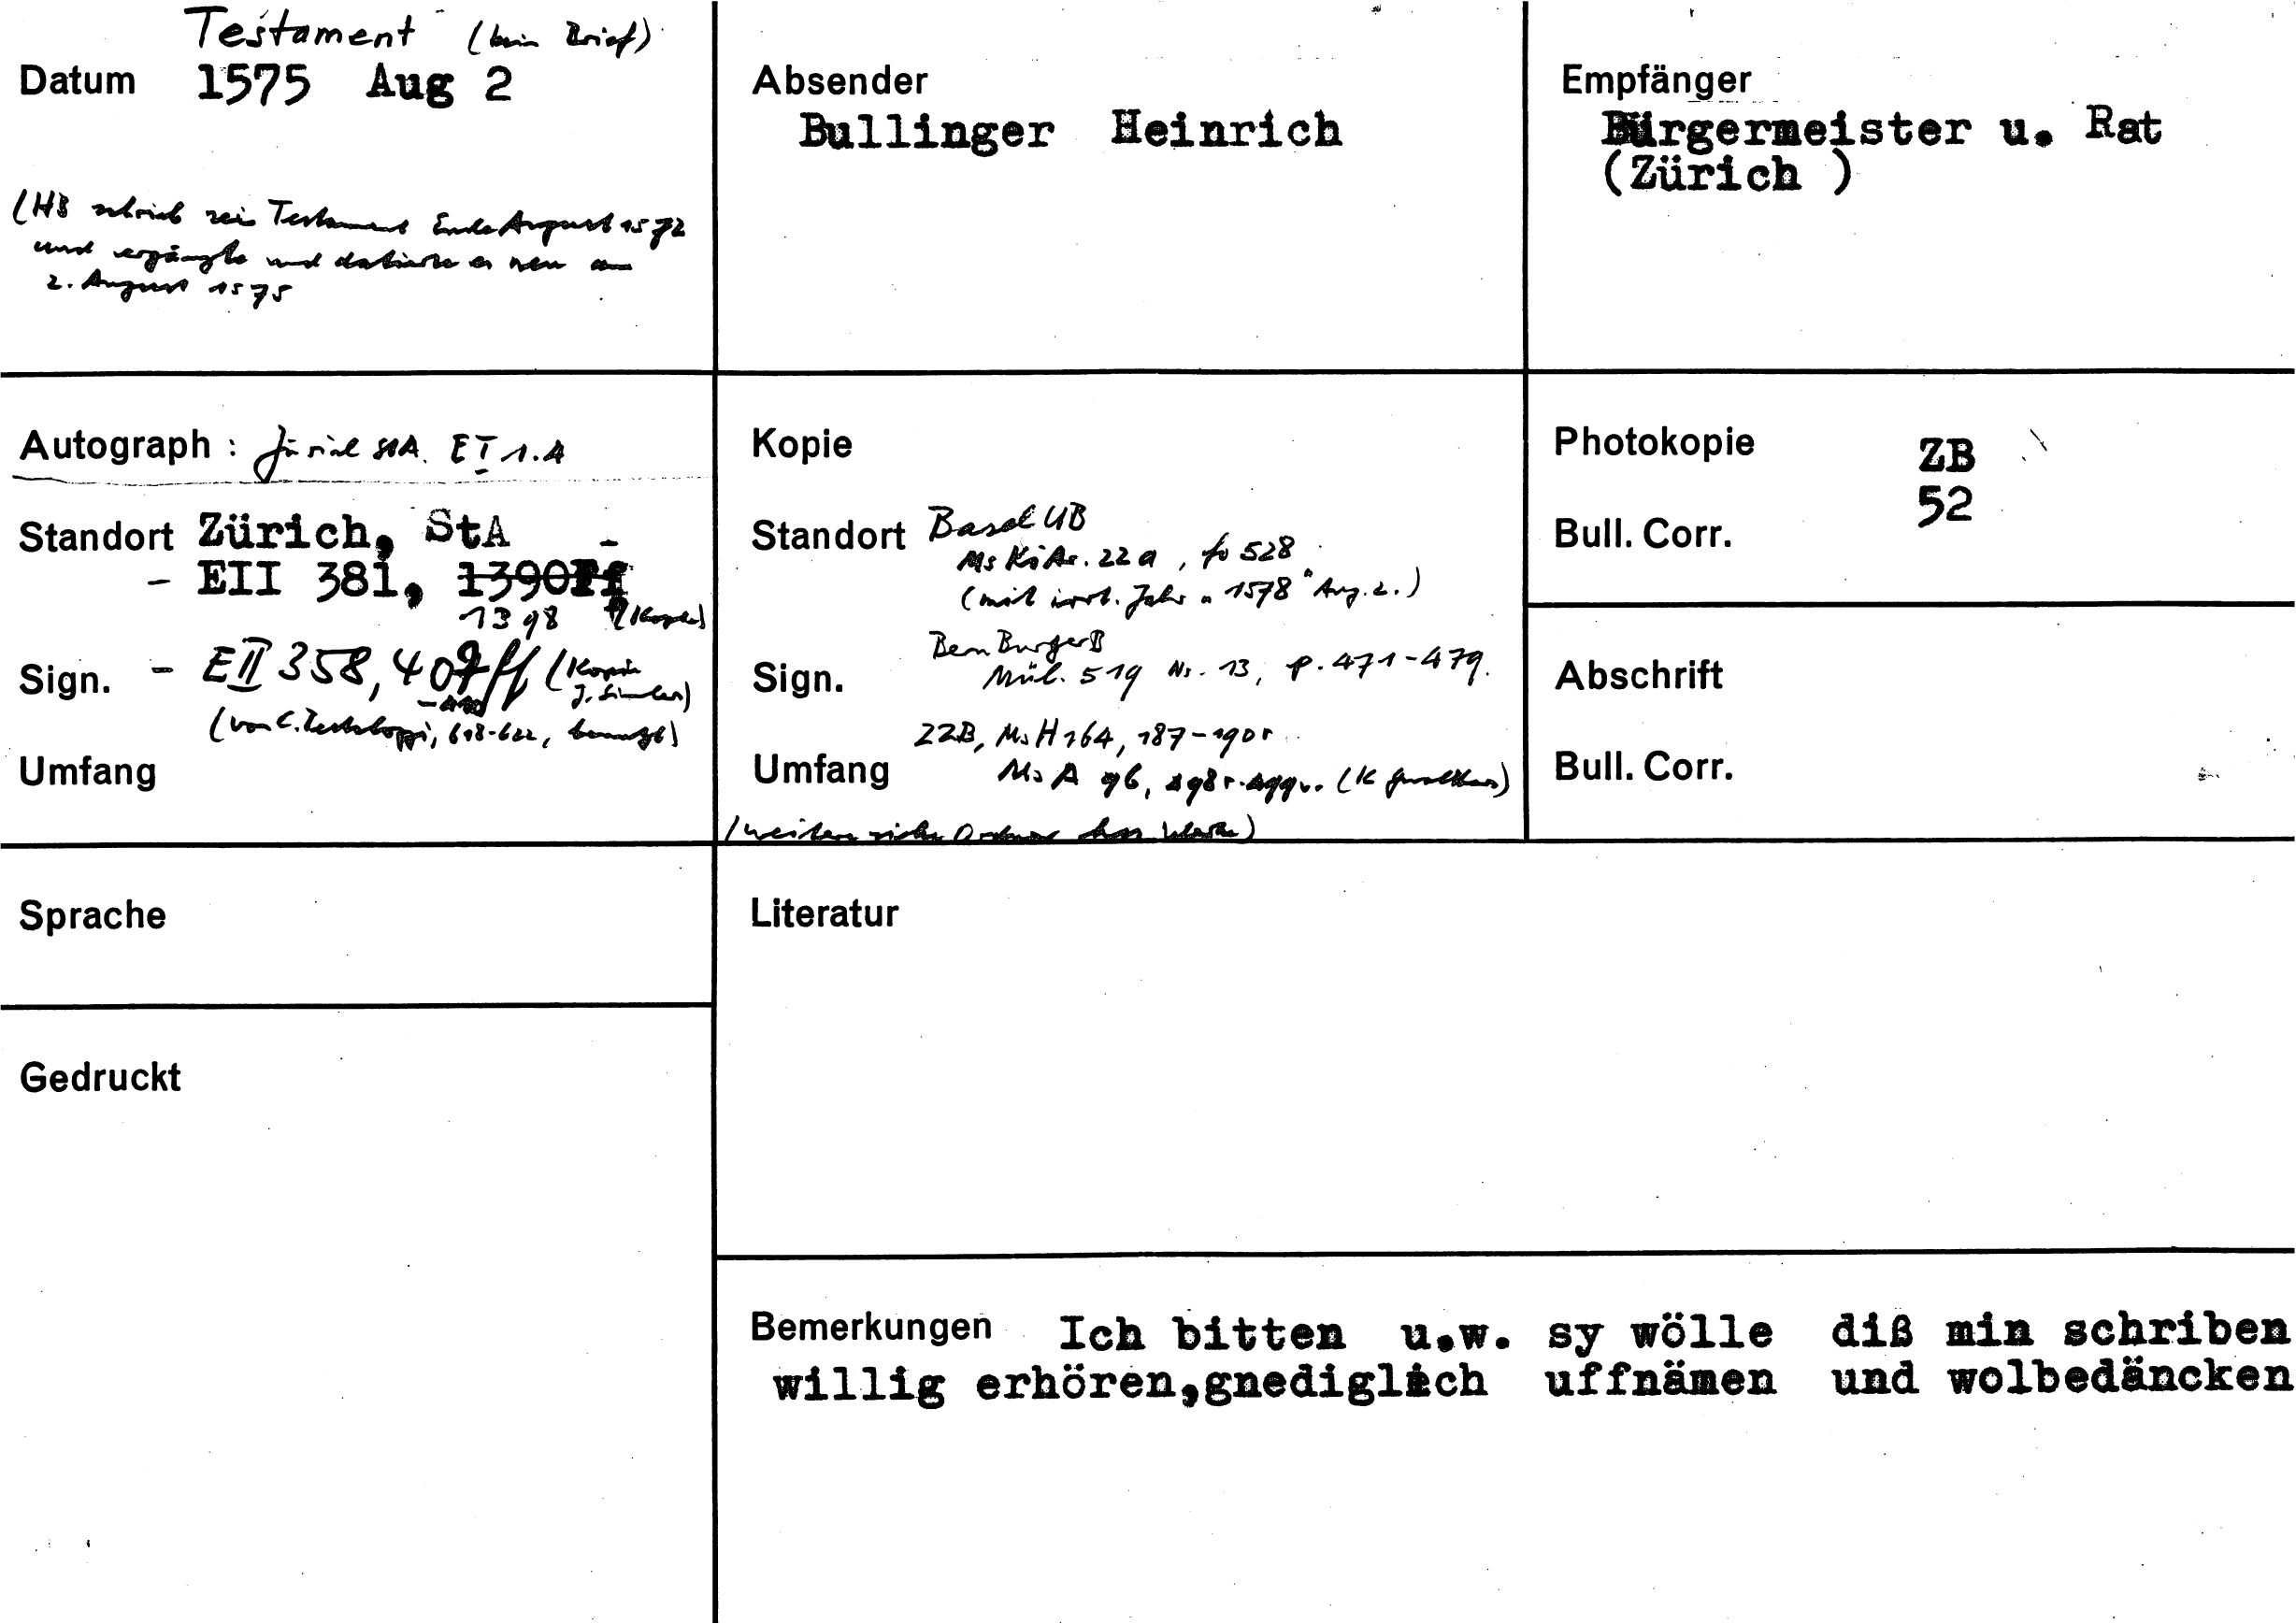 Testament (kein Brief)
Datum 1575 Aug 2
(HB schrieb sein Testament Ende August 1572
und ergänzte und datierte es neu am
2. August 1575
Absender
Bullinger Heinrich
Empfänger
Bürgermeister u. Rat
(Zürich )
Autograph : Zürich StA. E I 1.A
Standort Zürich, StA
- EII 381, 1390ff
1398 (Kopie)
Sign. - EII 358, 407ff (Kopie
J. Simler)
(von C. Pestalozzi, 618-622, benutzt)
Umfang
Kopie
Standort Basel UB
Ms Ki Ar. 22a, fo 528
(mit irrt. Jahr "1578" Aug. 2.)
Bern BurgerB
Sign. Mül. 519 Nr. 13, p. 471-479.
ZZB, Ms H 164, 187-190r
Umfang Ms A 96, 198r-199v. (K Gwalthers)
(weitere siehe Ordner
Photokopie ZB
52
Bull. Corr.
Abschrift
Bull. Corr.
Sprache
Literatur
Gedruckt
Bemerkungen Ich bitten u.w. sy wölle diß min schriben
willig erhören,gnediglich uffnämen und wolbedäncken